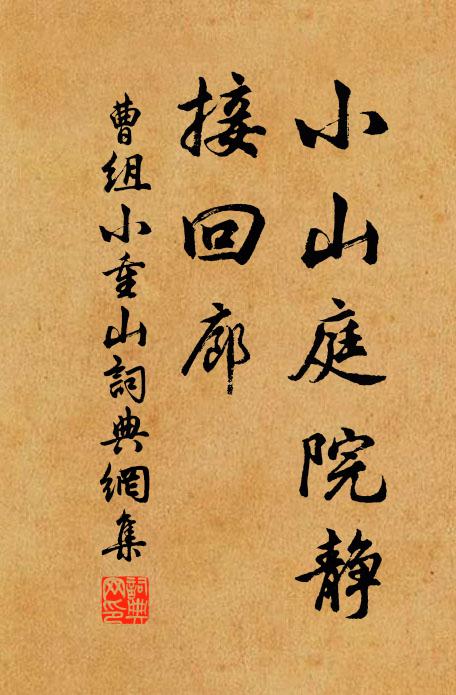 小山庭院静
接回廊
曹组小重山詞典網集
詞典网印